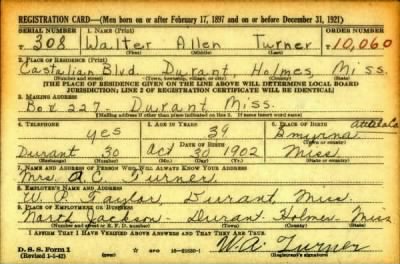 REGISTRATION CARD—(Men born on or after February 17, 1897 and on or before December 31, 1921)
SERIAL NUMBER 1. NAME (Print) ORDER NUMBER
308 Walter Allen Turner 10,060
(First) (Middle) (Last)
2. PLACE OF RESIDENCE (Print)
Castalian Blvd. Durant Holmes, Miss.
(Number and street) (Town, township, village, or city) (County) (State)
[THE PLACE OF RESIDENCE GIVEN ON THE LINE ABOVE WILL DETERMINE LOCAL BOARD
JURISDICTION; LINE 2 OF REGISTRATION CERTIFICATE WILL BE IDENTICAL]
3. MAILING ADDRESS
Box 227- Durant, Miss.
[Mailing address if other than place indicated on line 2. If same insert word same]
4. TELEPHONE 5. AGE IN YEARS 6. PLACE OF BIRTH
yes 39 Smyrna Attala Co
DATE OF BIRTH (Town or county)
Durant 30 Oct 30 1902 Miss.
(Exchange) (Number) (Mo.) (Day) (Yr.) (State or country)
7. NAME AND ADDRESS OF PERSON WHO WILL ALWAYS KNOW YOUR ADDRESS
Mrs. A. C. Turner.
8. EMPLOYER'S NAME AND ADDRESS
W. P. Taylor, Durant, Miss.
9. PLACE OF EMPLOYMENT OR BUSINESS
North Jackson - Durant - Holmes - Miss
(Number and street or R. F. D. number) (Town) (County) (State)
I AFFIRM THAT I HAVE VERIFIED ABOVE ANSWERS AND THAT THEY ARE TRUE.
D. S. S. Form 1
(Revised 1-1-42) GPO W.A. Turner
(Registrant's signature)